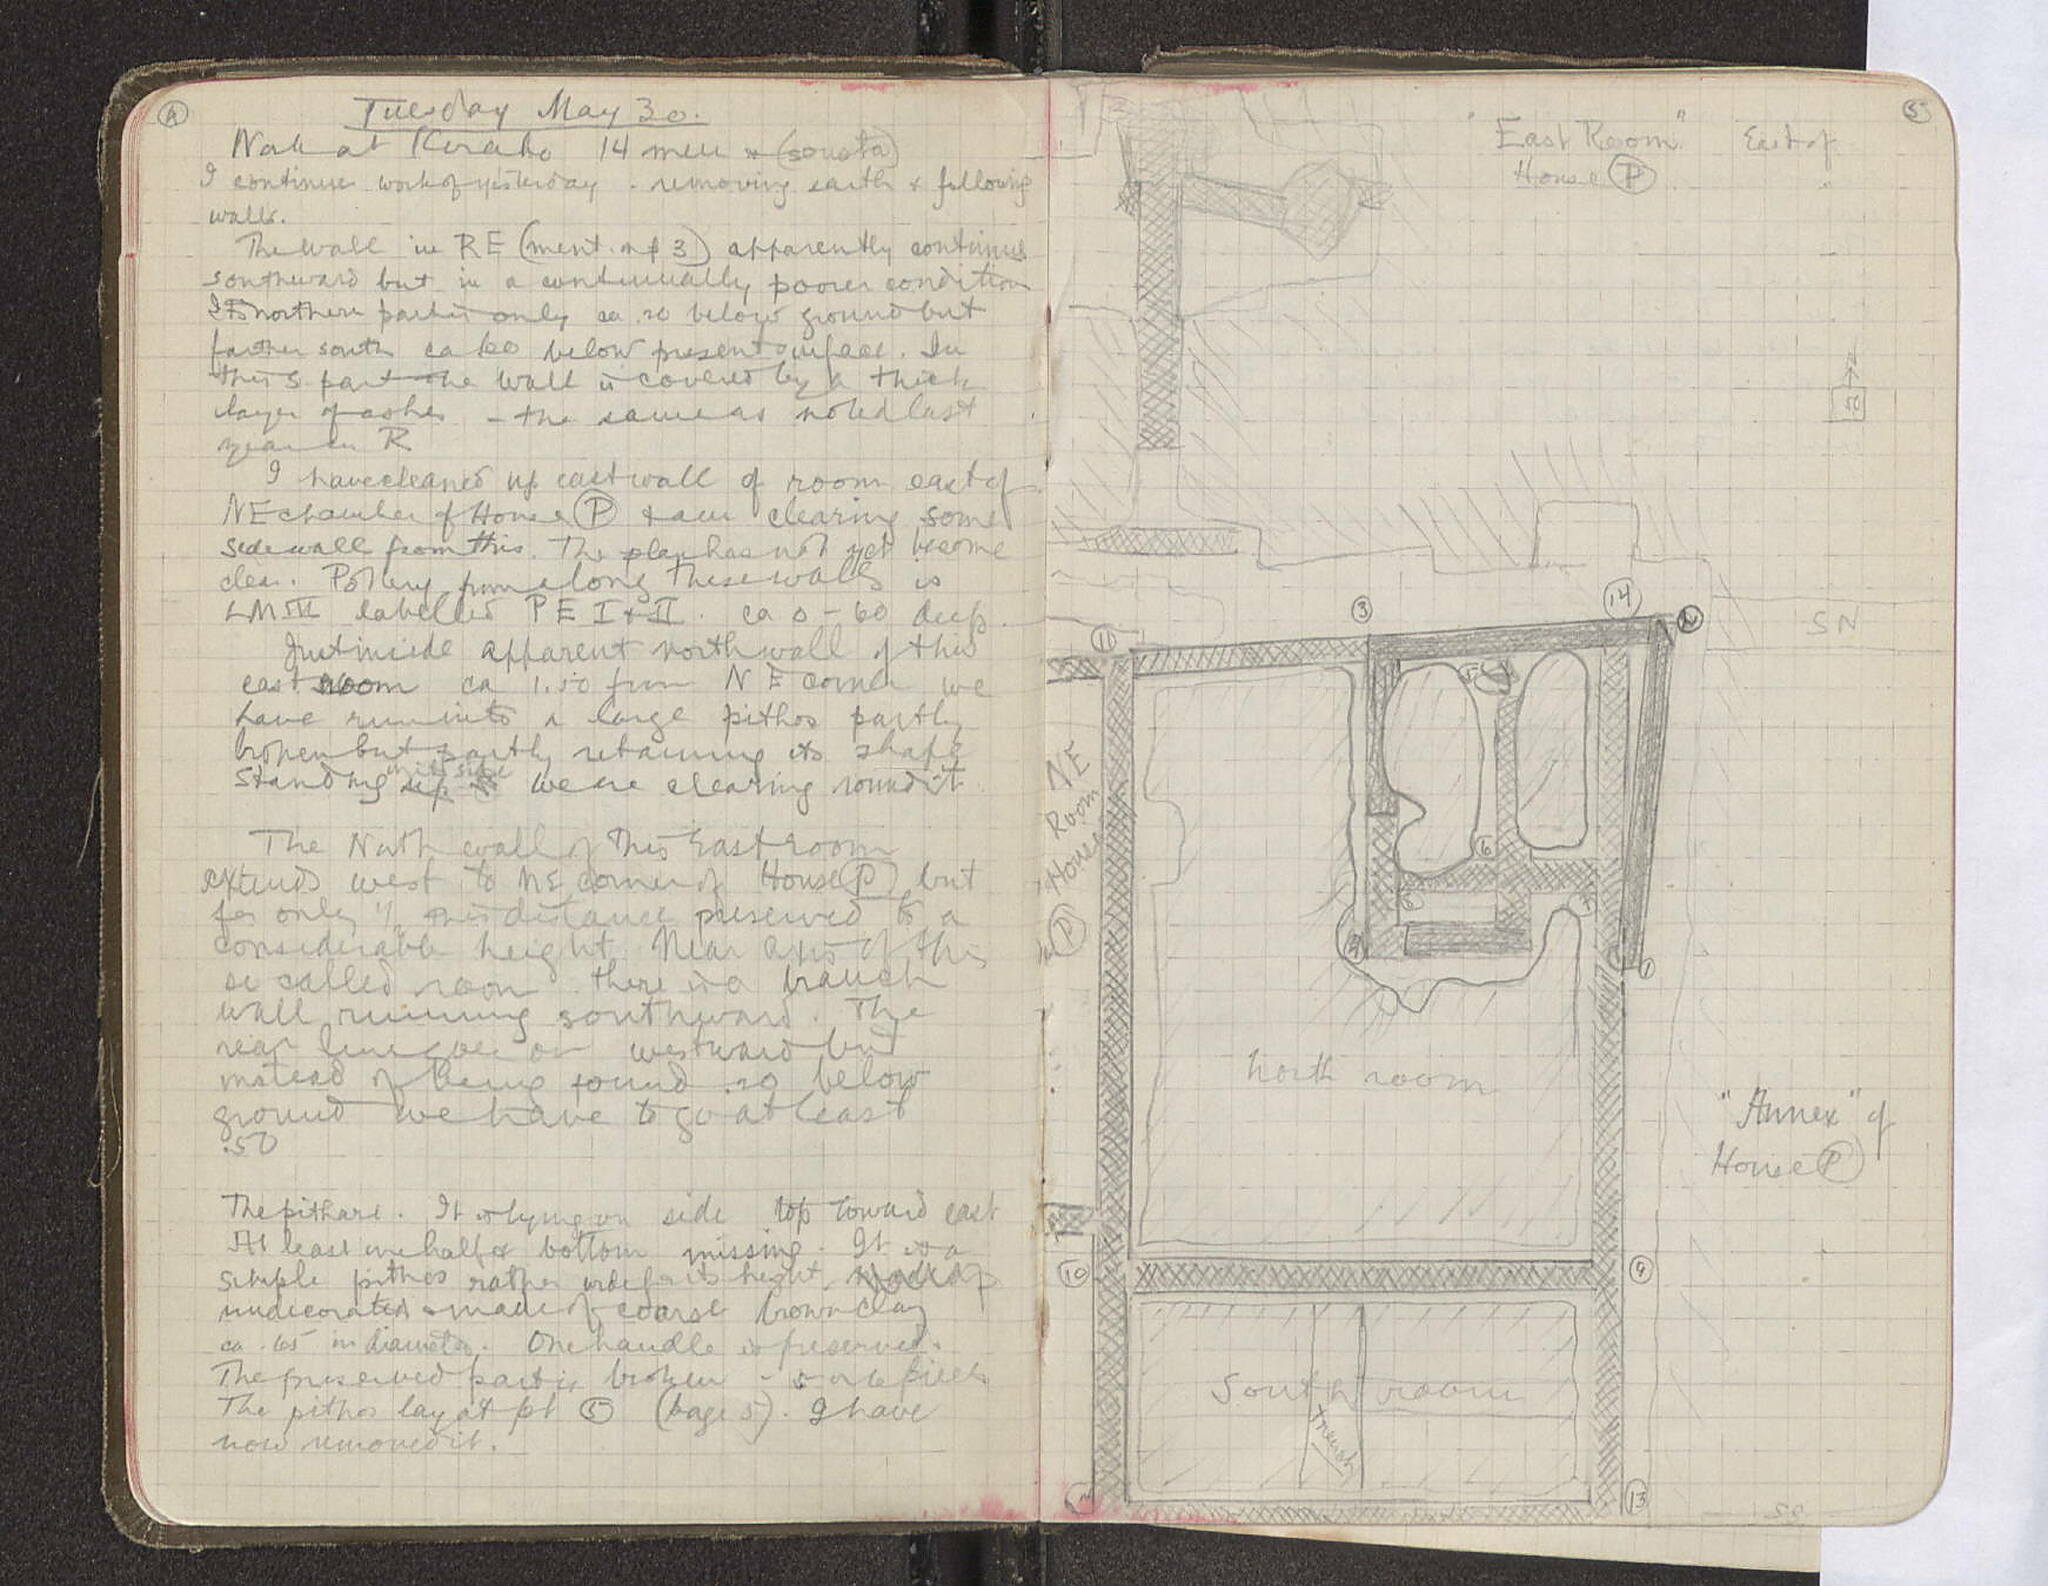 4
Tuesday May 30.
Work at Kiraho 14 men + (sousta)
I continue work of yesterday - removing earth & following
walls.
The wall in RE (ment. on p 3) apparently continues
southward but in a continually poorer condition
Its northern part is only ca .20 below ground but
farther south ca .60 below present surface. In
this S part the wall is covered by a thick
layer of ashes - the same as noted last
year in R
I have cleaned up east wall of room east of
NE chamber of House P & am clearing some
side wall from this. The plan has not yet become
clear. Pottery from along these walls is
LM III labelled P E I + II. ca 0-60 deep.
Just inside apparent north wall of this
east room ca 1.50 from NE corner we
have run into a large pithos partly
broken but partly retaining its shape
standing on its side We are clearing round it.
The North wall of this East room
extends west to NE corner of House P but
for only ½ this distance preserved to a
considerable height. Near axis of this
so called room there is a branch
wall running southward. The
rear line goes on westward but
instead of being found .20 below
ground we have to go at least
.50
The pithari. It is lying on side top toward east
At least one half & bottom missing. It is a
simple pithos rather wide for its height,
undecorated & made of coarse brown clay
ca .65 in diameter. One handle is preserved.
The preserved part is broken - 5 or 6 pieces
The pithos lay at pt 5 (page 5). I have
now removed it.
5
"East Room" East of
House P
50
3
14
2
11
S N
5
NE
Room
House
P
6
4
1
North room
"Annex" of
House P
10
9
South room
Trench
13